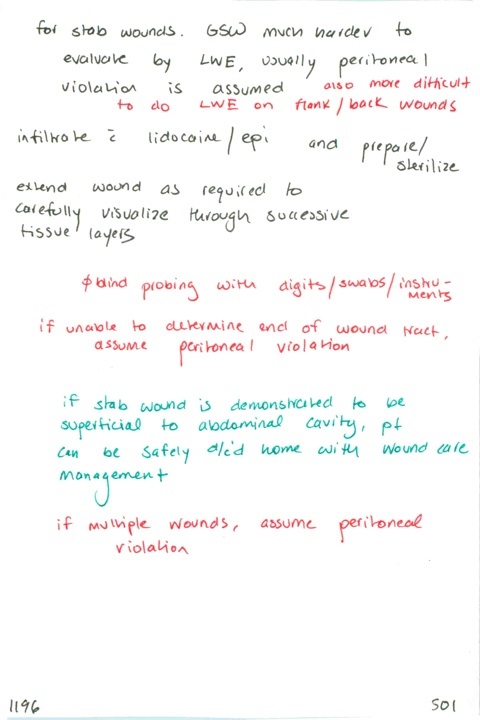 for stab wounds. GSW much harder to
evaluate by LWE, usually peritoneal
violation is assumed also more difficult
to do LWE on flank/back wounds
infiltrate c̄ lidocaine/epi and prepare/
sterilize
extend wound as required to
carefully visualize through successive
tissue layers
ϕ blind probing with digits/swabs/instru-
ments
if unable to determine end of wound tract,
assume peritoneal violation
if stab wound is demonstrated to be
superficial to abdominal cavity, pt
can be safely d/c'd home with wound care
management
if multiple wounds, assume peritoneal
violation
1196 501